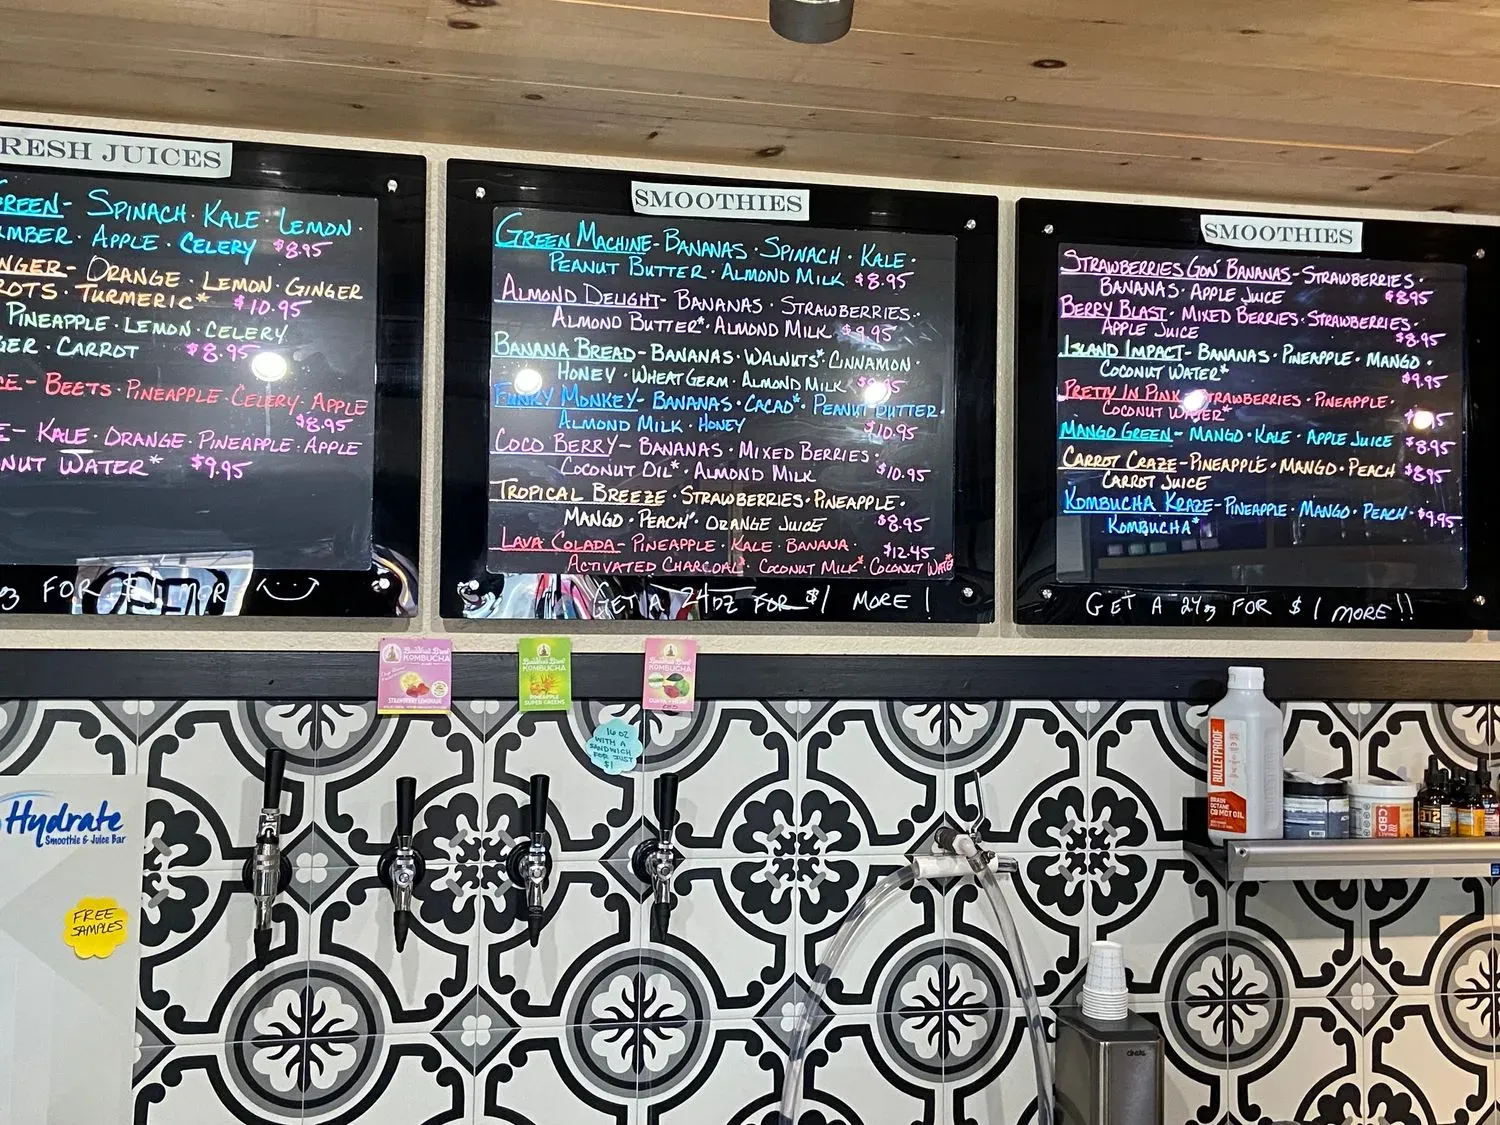 RESH JUICES
GREEN - SPINACH · KALE · LEMON ·
UMBER · APPLE · CELERY $8.95
NGER - ORANGE · LEMON · GINGER
ROTS · TURMERIC* $10.95
PINEAPPLE · LEMON · CELERY
GER · CARROT $8.95
CE - BEETS · PINEAPPLE · CELERY · APPLE
$8.95
E - KALE · ORANGE · PINEAPPLE · APPLE
NUT WATER* $9.95
FOR $1 MOR
SMOOTHIES
GREEN MACHINE - BANANAS · SPINACH · KALE ·
PEANUT BUTTER · ALMOND MILK $8.95
ALMOND DELIGHT - BANANAS · STRAWBERRIES ·
ALMOND BUTTER* · ALMOND MILK $9.95
BANANA BREAD - BANANAS · WALNUTS* CINNAMON ·
HONEY · WHEAT GERM · ALMOND MILK
FUNKY MONKEY - BANANAS · CACAO* · PEANUT BUTTER ·
ALMOND MILK · HONEY $10.95
COCO BERRY - BANANAS · MIXED BERRIES ·
COCONUT OIL* · ALMOND MILK $10.95
TROPICAL BREEZE · STRAWBERRIES · PINEAPPLE ·
MANGO · PEACH · ORANGE JUICE $8.95
LAVA COLADA - PINEAPPLE · KALE · BANANA · $12.45
ACTIVATED CHARCOAL* COCONUT MILK* COCONUT WATER*
GET A 24OZ FOR $1 MORE !
SMOOTHIES
STRAWBERRIES GON' BANANAS - STRAWBERRIES ·
BANANAS · APPLE JUICE $8.95
BERRY BLAST - MIXED BERRIES · STRAWBERRIES ·
APPLE JUICE $8.95
ISLAND IMPACT - BANANAS · PINEAPPLE · MANGO ·
COCONUT WATER* $9.95
PRETTY IN PINK STRAWBERRIES · PINEAPPLE ·
COCONUT WATER*
MANGO GREEN - MANGO · KALE · APPLE JUICE $8.95
CARROT CRAZE - PINEAPPLE · MANGO · PEACH $8.95
CARROT JUICE
KOMBUCHA KRAZE - PINEAPPLE · MANGO · PEACH · $9.95
KOMBUCHA*
GET A 24oz FOR $1 MORE!!
Buddha's Brew
KOMBUCHA
STRAWBERRY LEMONADE
Buddha's Brew
KOMBUCHA
PINEAPPLE
SUPER GREENS
Buddha's Brew
KOMBUCHA
16 OZ
WITH A
SANDWICH
FOR JUST
$1
Hydrate
Smoothie & Juice Bar
FREE
SAMPLES
BULLETPROOF
BRAIN
OCTANE
C8 MCT OIL
CBD
B12